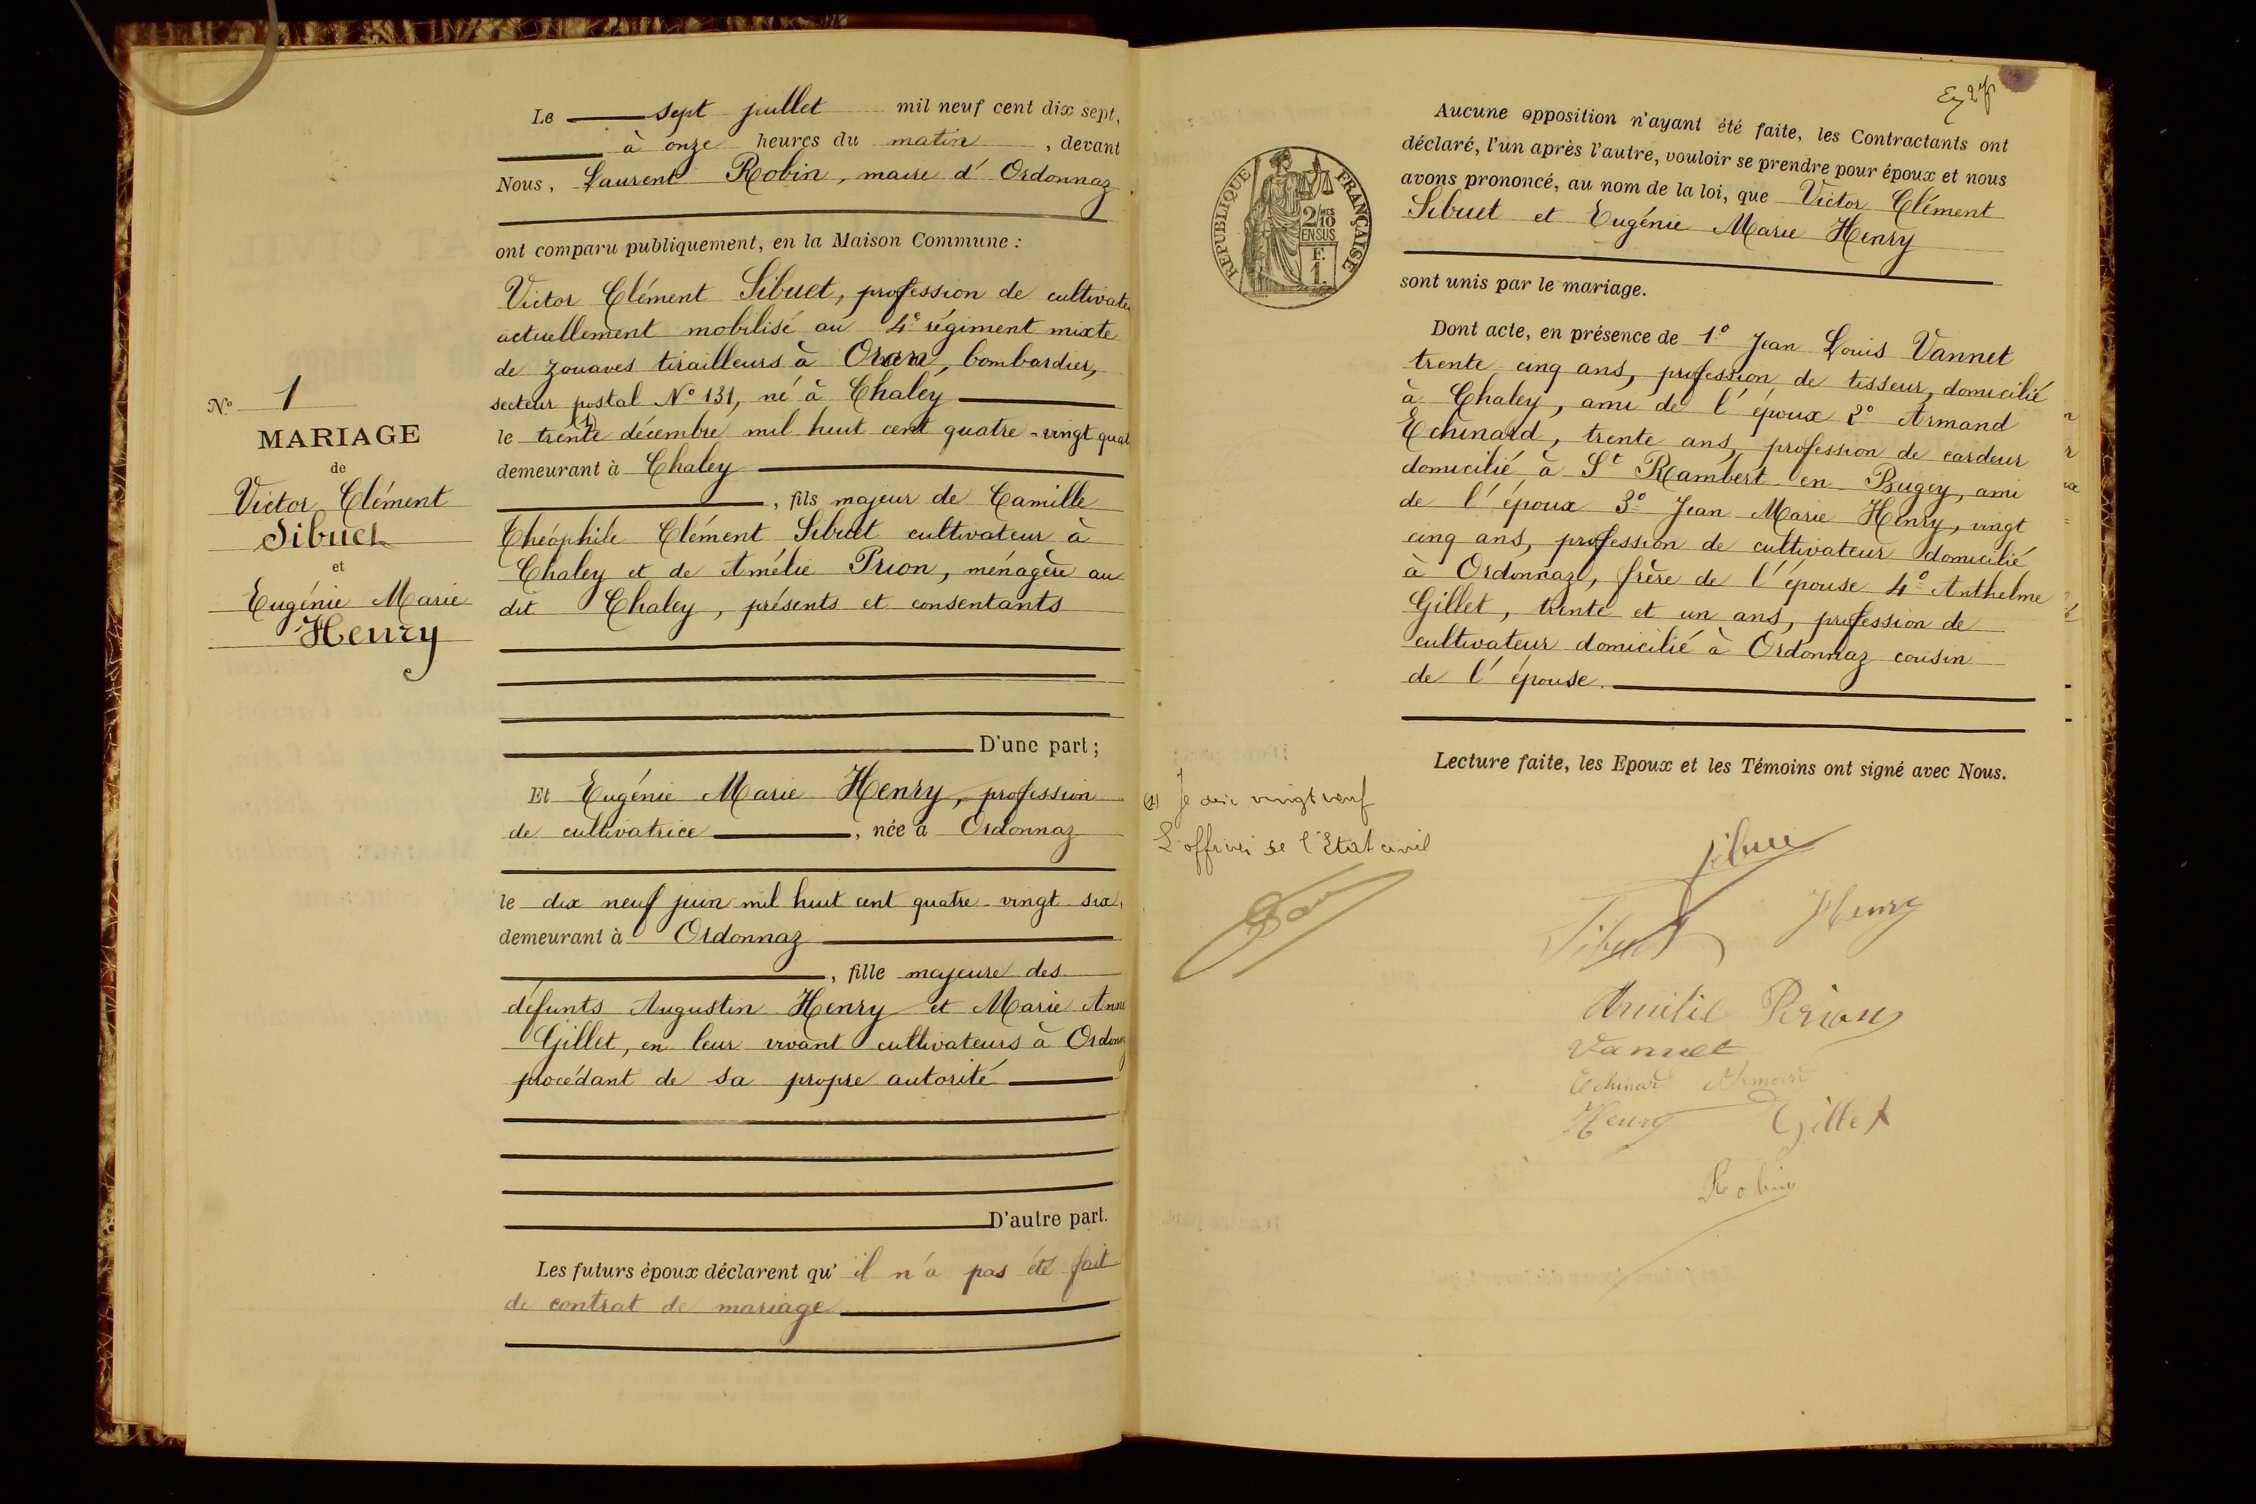 Le sept juillet mil neuf cent dix sept,
à onze heures du matin, devant
Nous, Laurent Robin, maire d'Ordonnaz
ont comparu publiquement, en la Maison Commune :
Victor Clément Sibuet, profession de cultivateu
actuellement mobilisé au 4e régiment mixte
de zouaves tirailleurs à Oran, bombardier,
secteur postal No 131, né à Chaley
(1)
le trente décembre mil huit cent quatre-vingt quat
demeurant à Chaley
, fils majeur de Camille
Théophile Clément Sibuet cultivateur à
Chaley et de Amélie Prion, ménagère au
dit Chaley, présents et consentants
D'une part ;
Et Eugénie Marie Henry, profession
de cultivatrice, née à Ordonnaz
le dix neuf juin mil huit cent quatre-vingt six,
demeurant à Ordonnaz
, fille majeure des
défunts Augustin Henry et Marie Anne
Gillet, en leur vivant cultivateurs à Ordonnaz
procédant de sa propre autorité
D'autre part.
Les futurs époux déclarent qu'il n'a pas été fait
de contrat de mariage
No 1
MARIAGE
de
Victor Clément
Sibuet
et
Eugénie Marie
Henry
Aucune opposition n'ayant été faite, les Contractants ont
déclaré, l'un après l'autre, vouloir se prendre pour époux et nous
avons prononcé, au nom de la loi, que Victor Clément
Sibuet et Eugénie Marie Henry
sont unis par le mariage.
Dont acte, en présence de 1o Jean Louis Vannet
trente cinq ans, profession de tisseur, domicilié
à Chaley, ami de l'époux 2o Armand
Echinard, trente ans, profession de cardeur
domicilié à St Rambert en Bugey, ami
de l'époux 3o Jean Marie Henry, vingt
cinq ans, profession de cultivateur domicilié
à Ordonnaz, frère de l'épouse 4o Anthelme
Gillet, trente et un ans, profession de
cultivateur domicilié à Ordonnaz cousin
de l'épouse.
Lecture faite, les Epoux et les Témoins ont signé avec Nous.
RÉPUBLIQUE FRANÇAISE
2/10 MES
EN SUS
F.
1.
(1) Je dis vingt neuf
L'officier de l'Etat civil
Sibuet
Sibuet Henry
Amélie Perion
Vannet
Echinard Armand
Henry Gillet
Robin